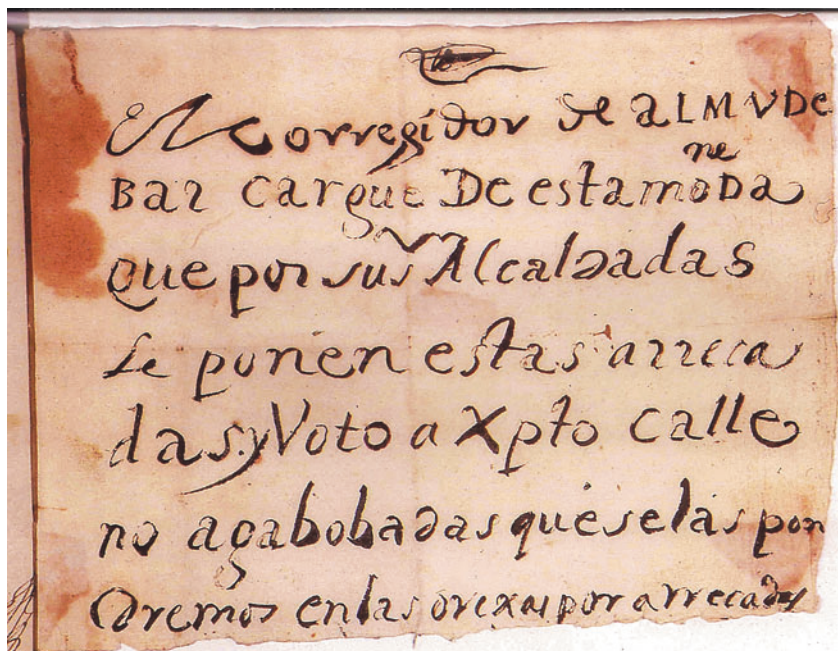 El Corregidor de aLMVDe
ne
Bar cargue De esta moDa
Que por sus Alcaldadas
Le ponen estas arreca
das y Voto a Xpto calle
no aga bobadas que se las pon
dremos en las orexas por arrecadas